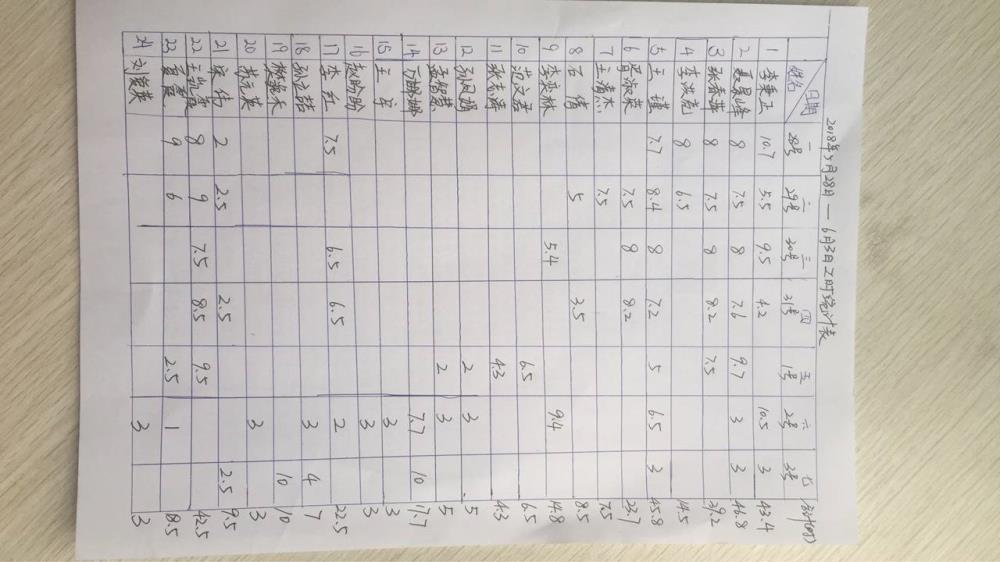 2018年5月28日 — 6月3日工时统计表
日期 一 二 三 四 五 六 七
姓名 28号 29号 30号 31号 1号 2号 3号 合计(时)
1 10.7 5.5 9.5 4.2 10.5 3 43.4
2 聂景峰 8 7.5 8 7.6 9.7 3 3 46.8
3 张春燕 8 7.5 8 8.2 7.5 39.2
4 李洪亮 8 6.5 14.5
5 王瑾 7.7 8.4 8 7.2 5 6.5 3 45.8
6 胥淑英 7.5 8 8.2 23.7
7 王清杰 7.5 7.5
8 石倩 5 3.5 8.5
9 李洪林 5.4 9.4 14.8
10 范文君 6.5 6.5
11 张志涛 4.3 4.3
12 孙凤娟 2 3 5
13 孟智慧 2 3 5
14 娜娜 7.7 10 17.7
15 王宁 3 3
16 赵盼盼 3 3
17 李红 7.5 6.5 6.5 2 22.5
18 3 4 7
19 10 10
20 3 3
21 梁伟 2 2.5 2.5 2.5 9.5
22 王凯霞 8 9 7.5 8.5 9.5 42.5
23 夏霞 9 6 2.5 1 8.5
24 刘俊英 3 3